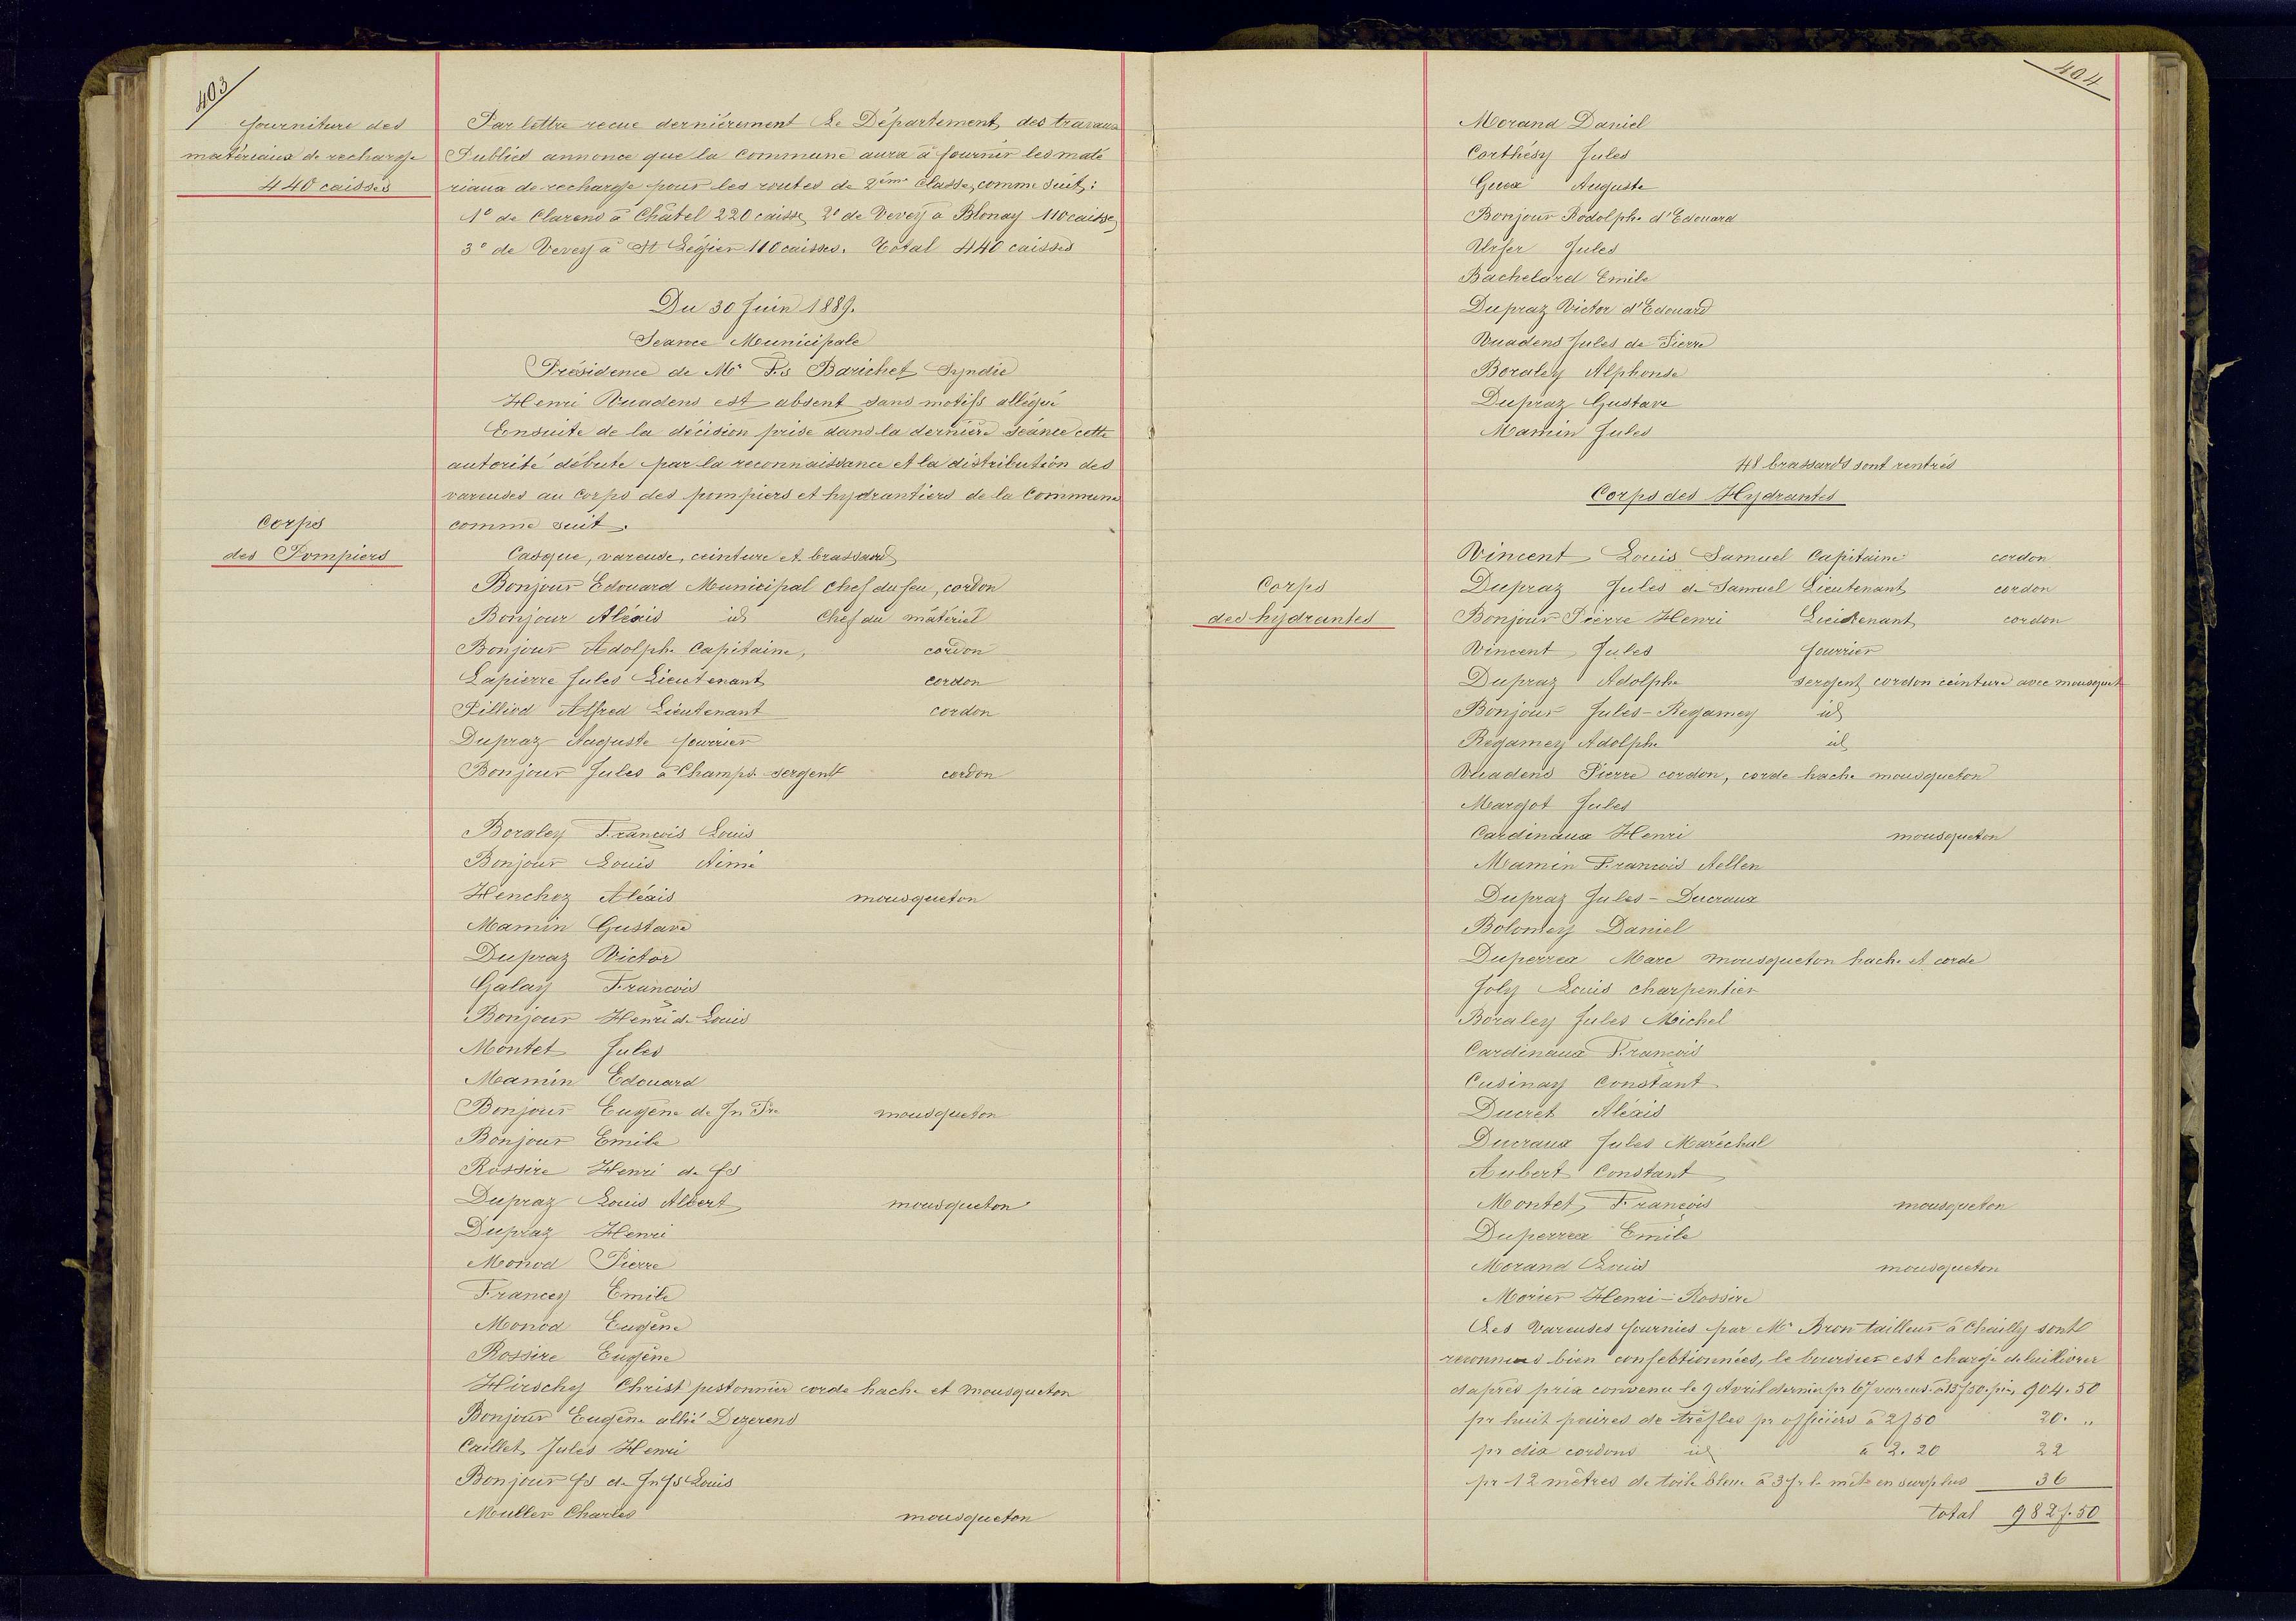 403
fourniture des
matériaux de recharge
440 caisses
Par lettre recue dernièrement Le Département des travaux
Publics annonce que la Commune aura à fournir les maté
riaux de recharge pour les routes de 2ème Classe, comme suit:
1° de Clarens à Châtel 220 caisse, 2° de Vevey à Blonay 110 caisse,
3° de Vevey à St Légier 110 caisses. Total 440 caisses
Du 30 Juin 1889.
Seance Municipale
Présidence de Mr F.s Barichet Syndic
Henri Vuadens est absent sans motifs allégué
Ensuite de la décision prise dans la dernière séance cette
autorité débute par la reconnaissance et la distribution des
vareuses au Corps des pompiers et hydrantiers de la Commune
comme suit.
Corps
des Pompiers
Casque, vareuse, ceinture et brassard
Bonjour Edouard Municipal Chef du feu, cordon
Bonjour Aléxis id Chef du matériel
Bonjour Adolphe Capitaine, cordon
Lapierre Jules Lieutenant cordon
Pilliod Alfred Lieutenant cordon
Dupraz Auguste fourrier
Bonjour Jules à Champs. sergent cordon
Boraley Francois Louis
Bonjour Louis Aimé
Henchoz Aléxis mousqueton
Mamin Gustave
Dupraz Victor
Galay Francois
Bonjour Henri de Louis
Montet Jules
Mamin Edouard
Bonjour Eugène de Jn Pre mousqueton
Bonjour Emile
Rossire Henri de fs
Dupraz Louis Albert mousqueton
Dupraz Henri
Monod Pierre
Francey Emile
Monod Eugène
Rossire Eugène
Hirschy Christ pistonnier corde hache et mousqueton
Bonjour Eugène allié Dezerens
Caillet Jules Henri
Bonjour fs de Jn fs Louis
Muller Charles mousqueton
404
Morand Daniel
Corthésy Jules
Guex Auguste
Bonjour Rodolphe d'Edouard
Urfer Jules
Bachelard Emile
Dupraz Victor d'Edouard
Vuadens Jules de Pierre
Boraley Alphonse
Dupraz Gustave
Mamin Jules
48 brassards sont rentrés
Corps des Hydrantes
Corps
des hydrantes
Vincent Louis Samuel Capitaine cordon
Dupraz Jules de Samuel Lieutenant cordon
Bonjour Pierre Henri Lieutenant cordon
Vincent Jules fourrier
Dupraz Adolphe sergent cordon ceinture avec mousquet
Bonjour Jules-Regamey id
Regamey Adolphe id
Vuadens Pierre cordon, corde hache mousqueton
Margot Jules
Cardinaux Henri mousqueton
Mamin Francois Aellen
Dupraz Jules - Ducraux
Bolomey Daniel
Duperrex Marc mousqueton hache et corde
Joly Louis charpentier
Boraley Jules Michel
Cardinaux Francois
Cusinay Constant
Ducret Aléxis
Ducraux Jules Maréchal
Aubert Constant
Montet Francois mousqueton
Duperrex Emile
Morand Louis mousqueton
Morier Henri - Rossire
Les Vareuses fournies par Mr Bron tailleur à Chailly sont
reconnues bien confectionnées, le boursier est chargé de lui livrer
dapres prix convenu le 9 Avril dernier pr 67 vareus. à 13f50. pie, 904.50
pr huit paires de trèfles pr officiers à 2f50 20. "
pr dix cordons id à 2.20 22
pr 12 mètres de toile bleue à 3 fr le mètr en surplus 36
total 982f.50